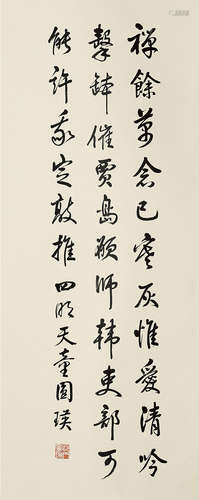 禅餘萬念已寒灰惟愛清吟
擊鉢催賈島願師韩吏部可
能許我定敲推 四明天童圆瑛